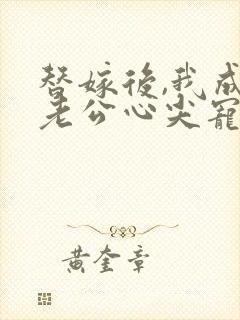 替嫁後,我成
老公心尖寵
黃奎章